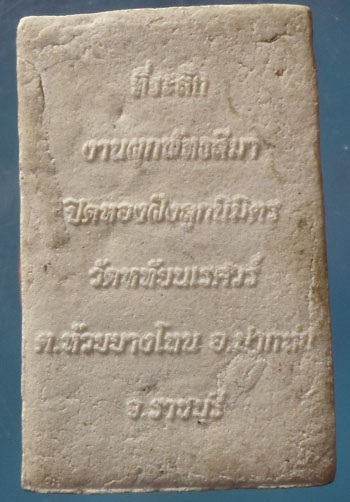 ที่ระลึก
งานผูกพัทธสีมา
ปิดทองฝังลูกนิมิตร
วัดหทัยนเรศวร์
ต.ห้วยยางโทน อ.ปากท่อ
จ.ราชบุรี